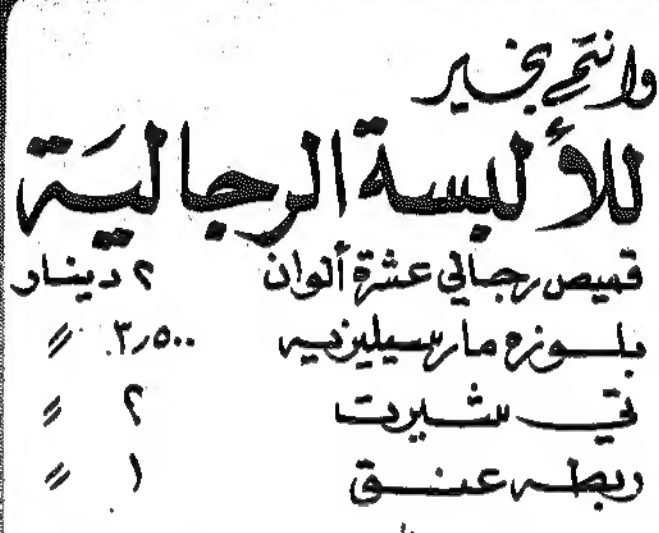 وانتم بخير
للألبسة الرجالية
قميص رجالي عشرة ألوان ٢ دينار
بلوزه مارسيليزيه ٣,٥٠٠〃
تي شيرت ٢ 〃
ربطه عنق ١ 〃